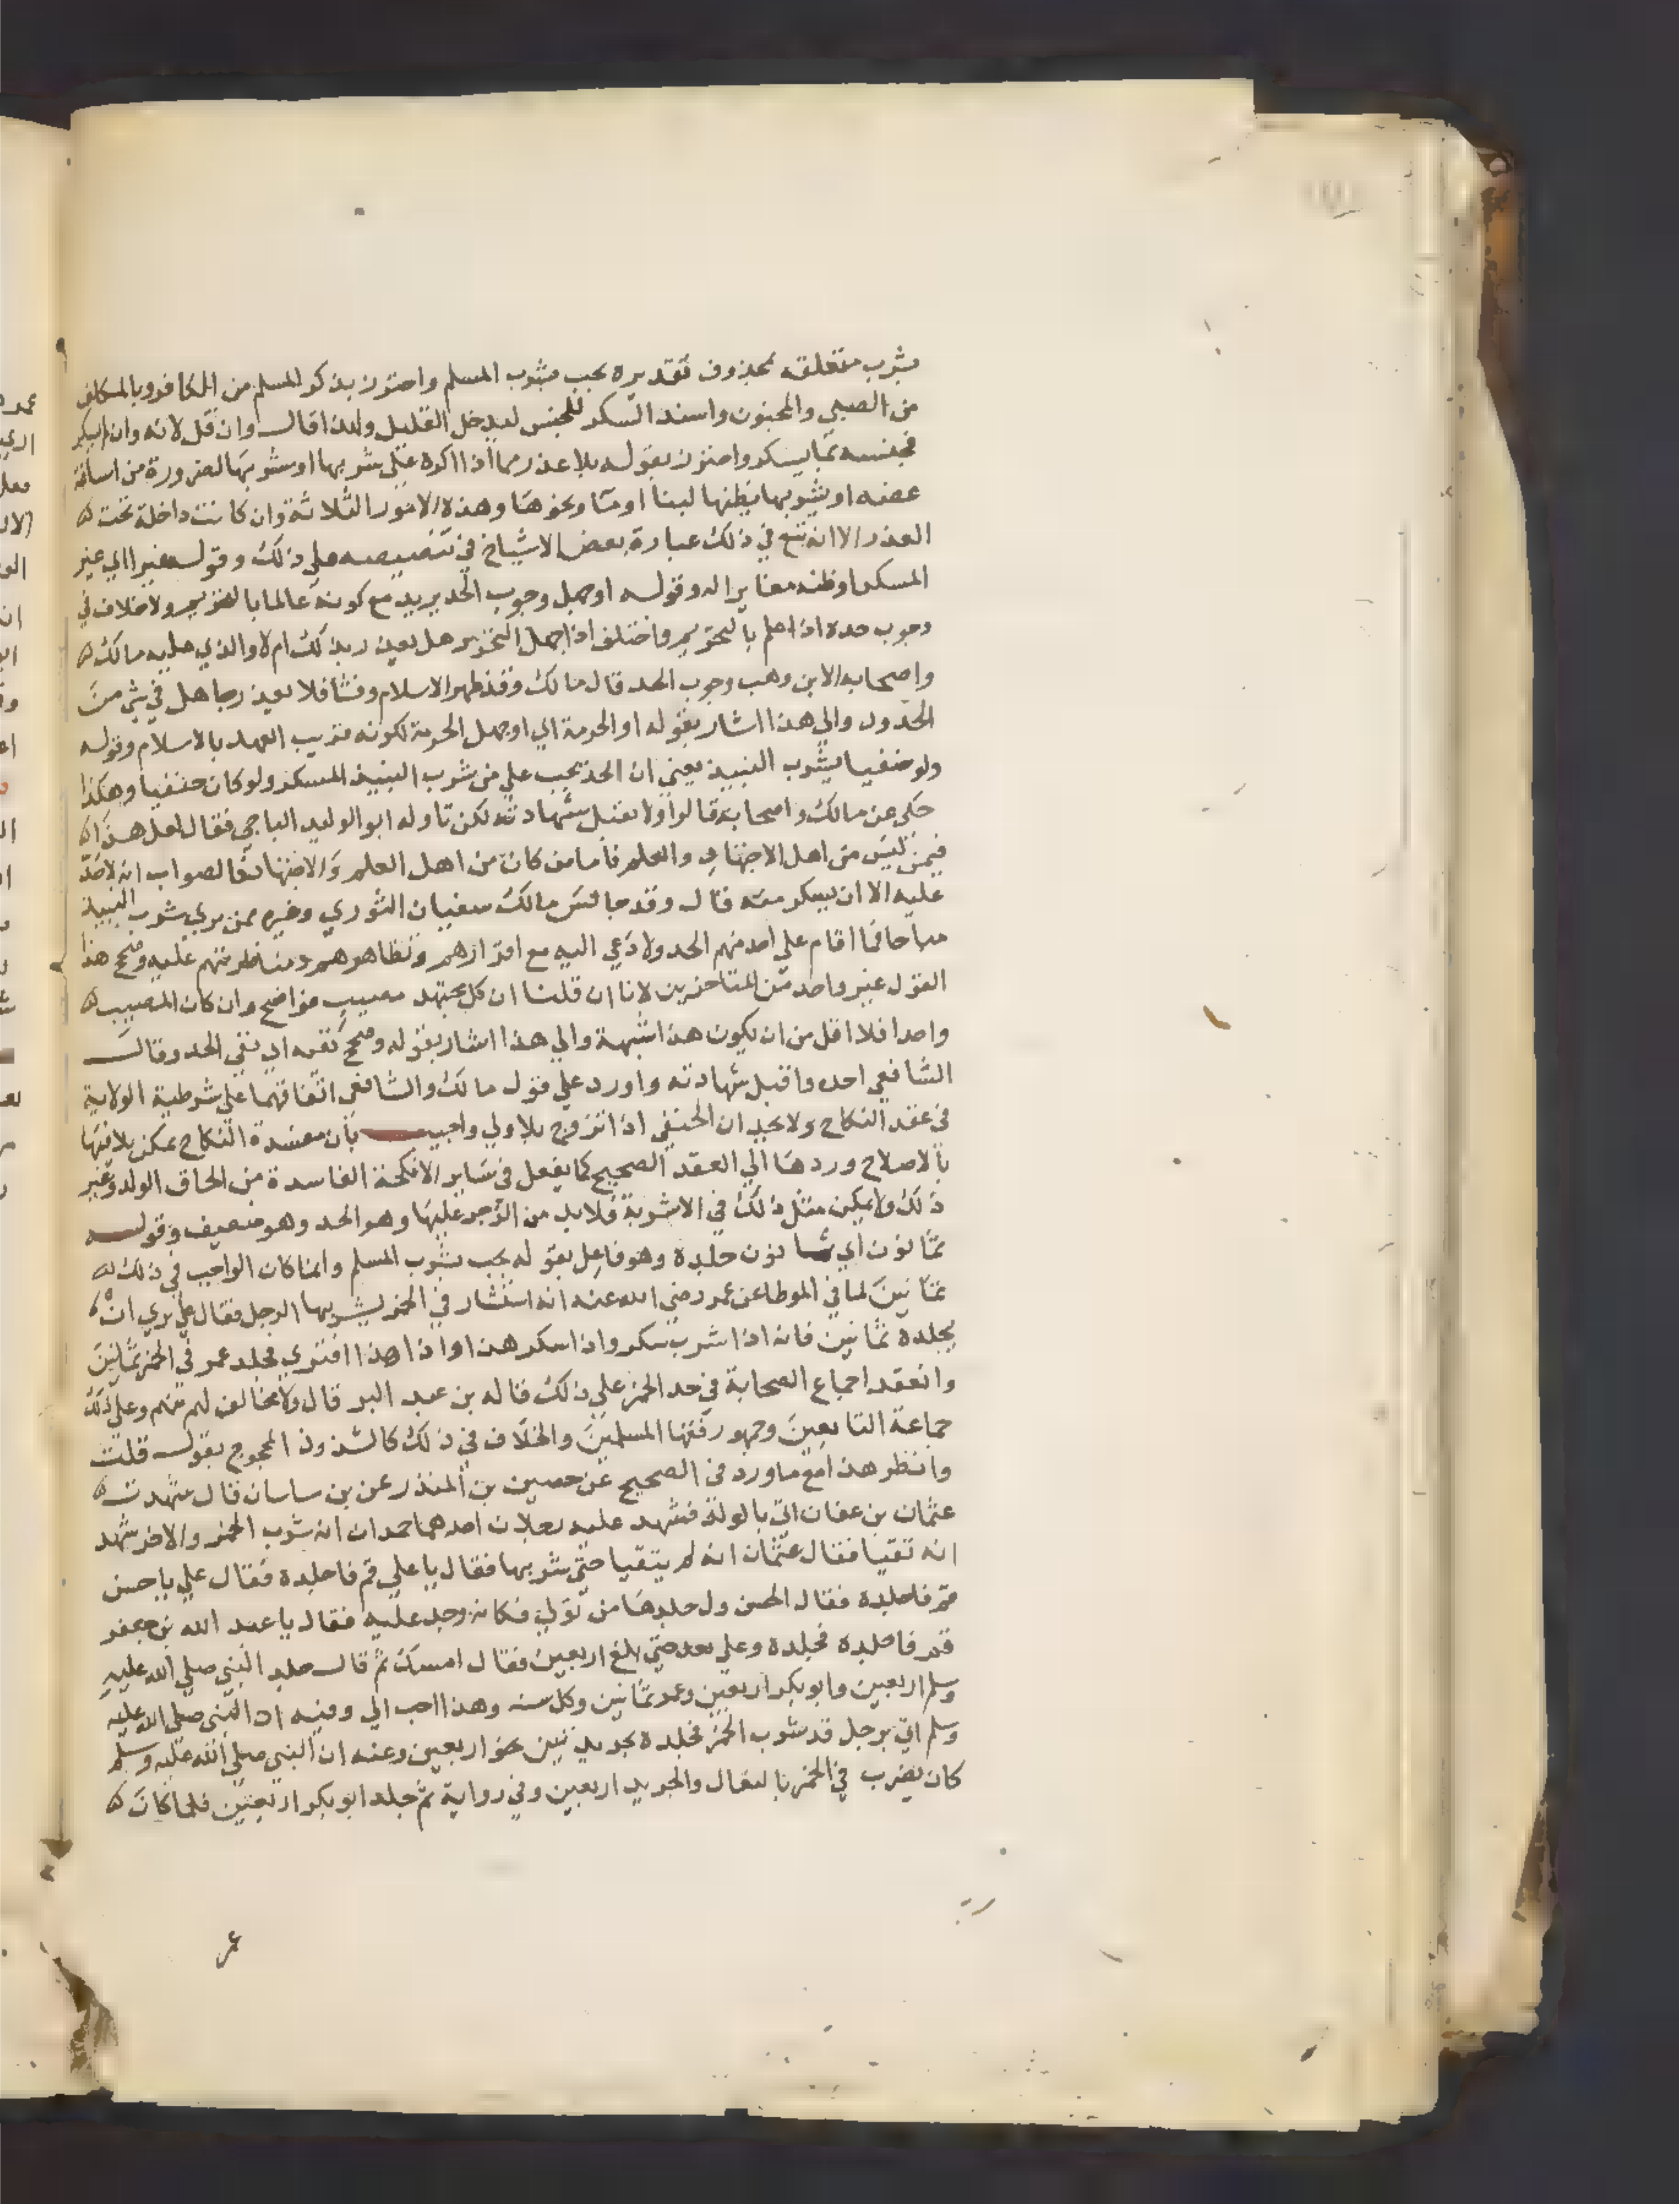 بشرب متعلق بمحذوف تقديره يجب بشرب المسلم واحترز بذكر المسلم من الكافر وبالمكلف
من الصبي والمجنون واسند السكر للجنس ليدخل القليل ولذا قال وان قل لانه وان لم يسكر
فجنسه مما يسكر واحترز بقوله بلا عذر مما اذا اكره على شربها او شربها لضرورة من اساغة
غصة او يشربها يظنها لبنا او ما ونحوها وهذه الامور الثلاثة وان كانت داخلة تحت
العذر الا انه تبع في ذلك عبارة بعض الاشياخ في تنصيصه على ذلك وقوله غيرا اي غير
المسكر او ظنه مغايرا له وقوله او جهل وجوب الحد يريد مع كونه عالما بالتحريم ولا خلاف في
وجوب حده اذا علم بالتحريم واختلف اذا جهل التحريم هل يعذر بذلك ام لا والذي عليه مالك
واصحابه الا بن وهب وجوب الحد قال مالك وقد ظهر الاسلام وفشا فلا يعذر جاهل في شي من
الحدود والي هذا اشار بقوله او الحرمة اي او جهل الحرمة لكونه قريب العهد بالاسلام وقوله
ولو حنفيا يشرب النبيذ يعني ان الحد يجب علي من شرب النبيذ المسكر ولو كان حنفيا وهكذا
حكي عن مالك واصحابه قالوا ولا تقبل شهادته لكن تاوله ابو الوليد الباجي فقال لعل هذا
فيمن ليس من اهل الاجتهاد والعلم فاما من كان من اهل العلم والاجتهاد فالصواب انه لا حد
عليه الا ان يسكر منه قال وقد جالس مالك سفيان الثوري وغيره ممن يري شرب النبيذ
مباحا فما اقام علي احد منهم الحد ولا دعي اليه مع اقرارهم وتظاهرهم ومناظرتهم عليه وصحح هذا
القول غير واحد من المتاخرين لانا ان قلنا ان كل مجتهد مصيب فواضح وان كان المصيب
واحدا فلا اقل من ان يكون هذا شبهة والي هذا اشار بقوله وصحح نفيه اي نفي الحد وقال
الشافعي احده واقبل شهادته واورد علي قول مالك والشافعي اتفاقهما علي شرطية الولاية
في عقد النكاح ولا يحد ان الحنفي اذا تزوج بلا ولي واجيب بأن مفسدة النكاح يمكن تلافيها
بالاصلاح وردها الي العقد الصحيح كما يفعل في ساير الانكحة الفاسدة من الحاق الولد وغير
ذلك ولا يمكن مثل ذلك في الاشربة فلا بد من الزجر عليها وهو الحد وهو ضعيف وقوله
ثمانون اي ثمانون جلدة وهو فاعل بقوله يجب بشرب المسلم وانما كان الواجب في ذلك
ثمانين لما في الموطا عن عمر رضي الله عنه انه استشار في الخمر يشربها الرجل فقال علي نري ان
يجلده ثمانين فانه اذا شرب سكر واذا سكر هذا واذا هذا افتري فجلد عمر في الخمر ثمانين
وانعقد اجماع الصحابة في حد الخمر علي ذلك قاله بن عبد البر قال ولا مخالف لهم منهم وعلي ذلك
جماعة التابعين وجمهور فقها المسلمين والخلاف في ذلك كالشذوذ المحجوج بقول قلت
وانظر هذا مع ما ورد في الصحيح عن حصين بن المنذر عن بن ساسان قال شهدت
عثمان بن عفان اتي بالوليد فشهد عليه رجلان احدهما حمران انه شرب الخمر والاخر شهد
انه تقيا فقال عثمان انه لم يتقيا حتي شربها فقال يا علي قم فاجلده فقال علي يا حسن
قم فاجلده فقال الحسن ول حارها من تولي فكانه وجد عليه فقال يا عبد الله بن جعفر
قم فاجلده فجلده وعلي يعد حتي بلغ اربعين فقال امسك ثم قال جلد النبي صلي الله عليه
وسلم اربعين وابو بكر اربعين وعمر ثمانين وكل سنه وهذا احب الي وفيه ان النبي صلي الله عليه
وسلم اتي برجل قد شرب الخمر فجلده بجريدتين نحو اربعين وعنه ان النبي صلي الله عليه وسلم
كان يضرب في الخمر بالنعال والجريد اربعين وفي رواية ثم جلد ابو بكر اربعين فلما كان
عمر